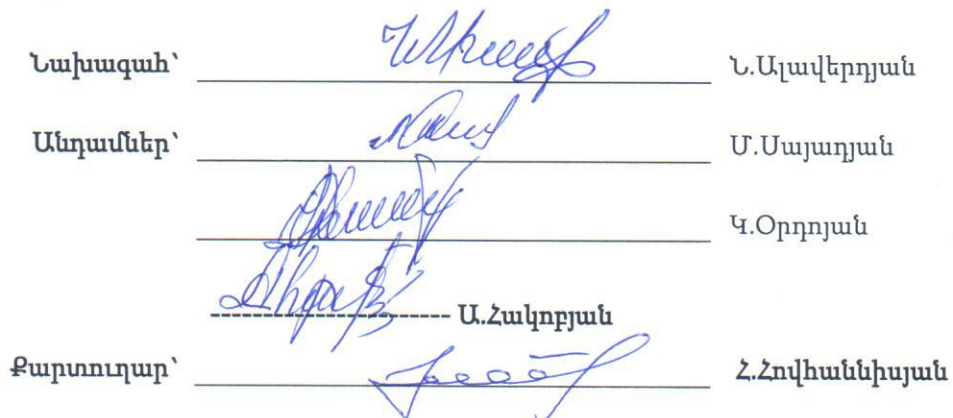 Նախագահ՝ Ն.Ալավերդյան
Անդամներ՝ Մ.Սայադյան
Կ.Օրդոյան
Ա.Հակոբյան
Քարտուղար՝ Հ.Հովհաննիսյան